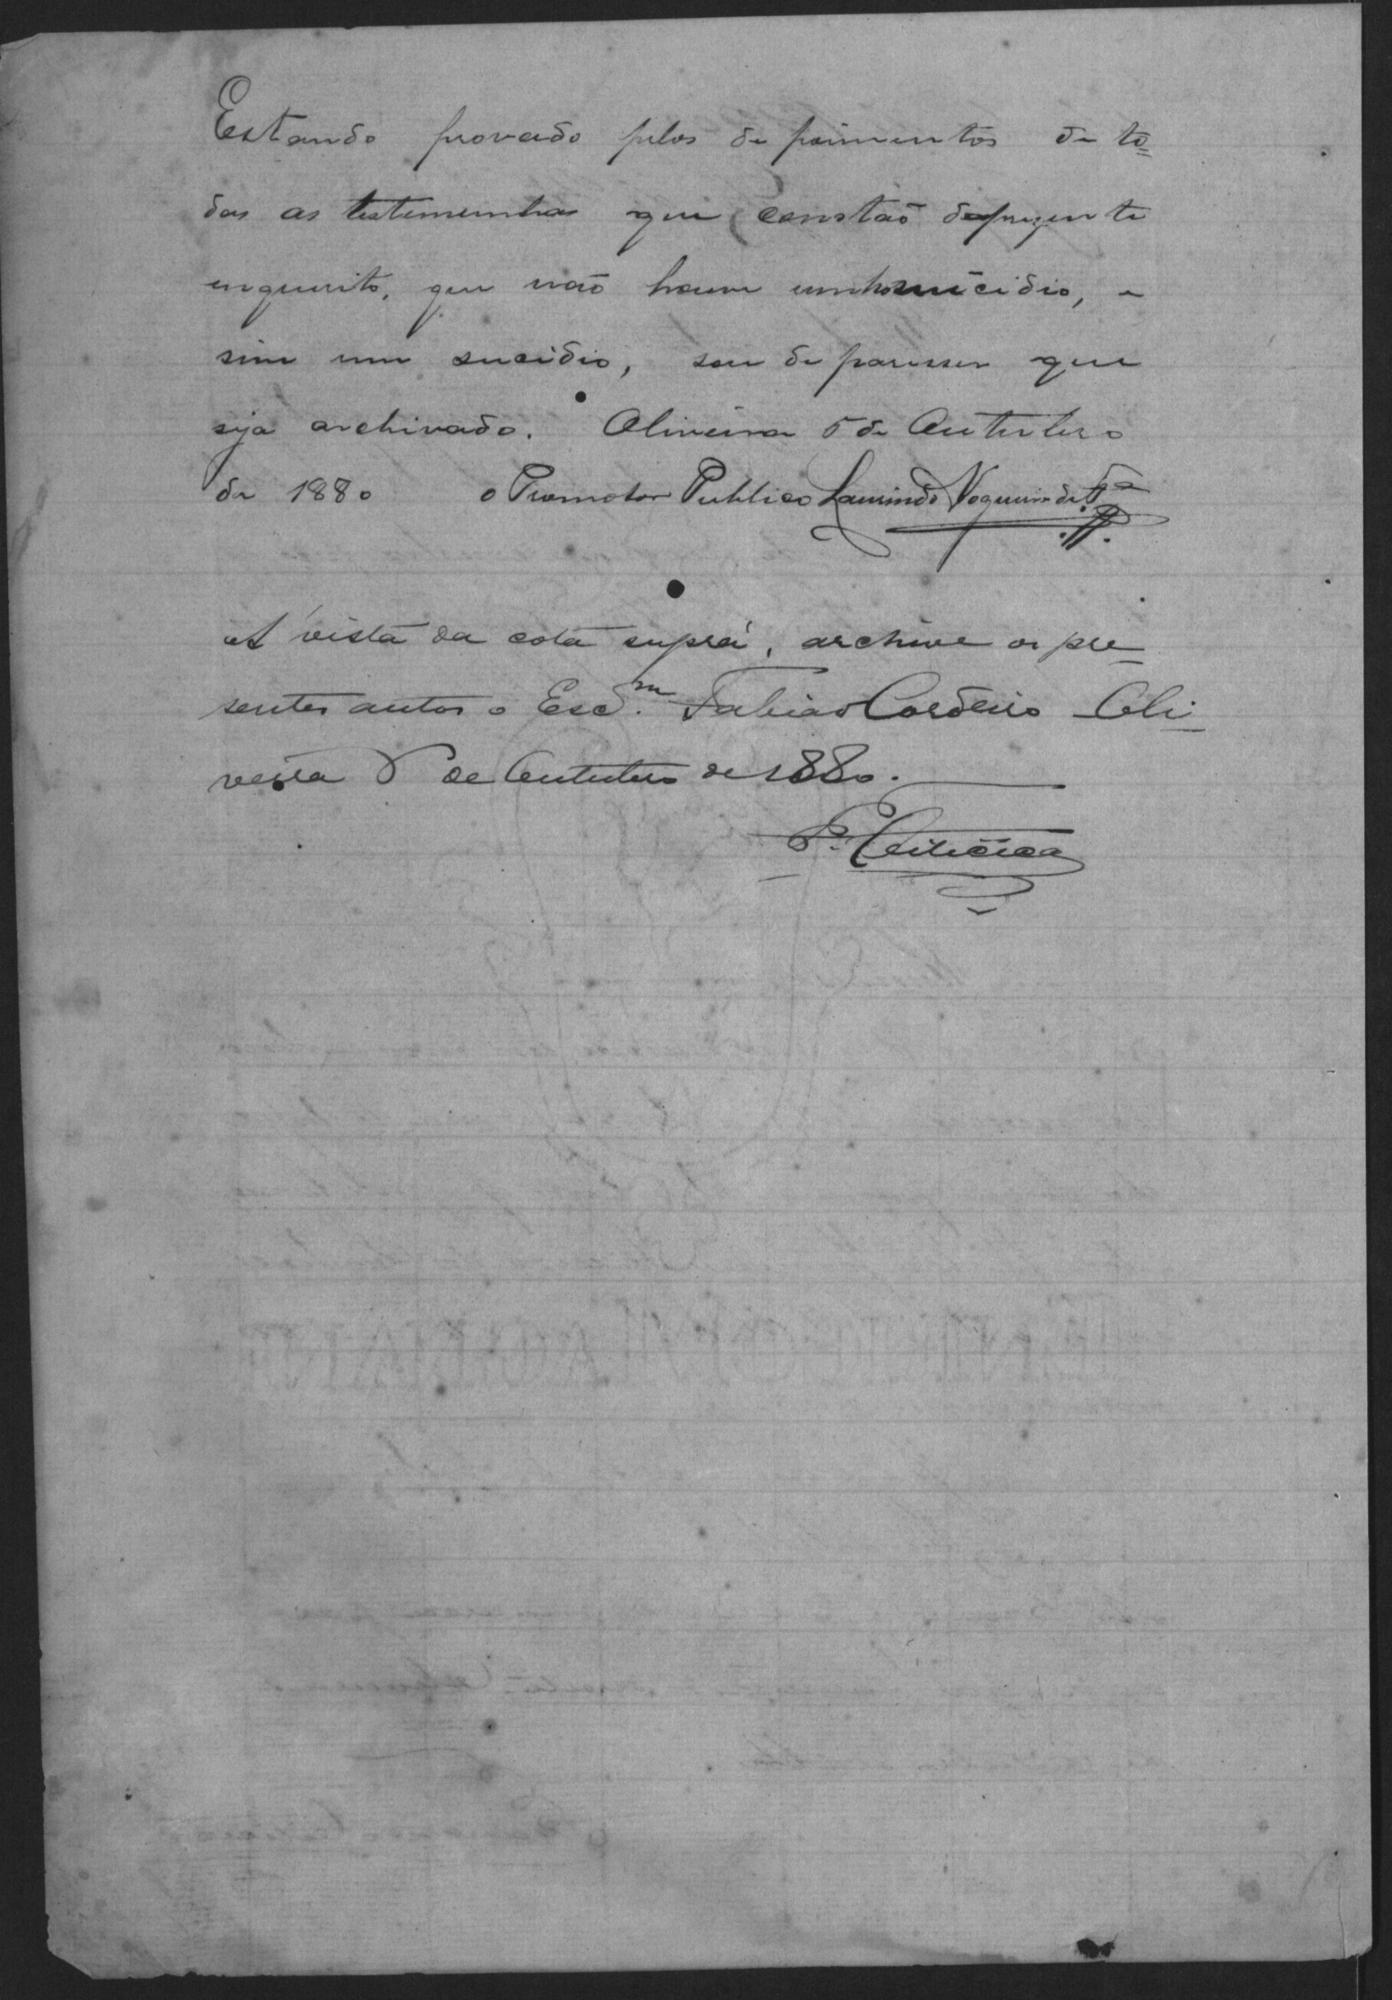 Estando provado pelos depoimentos de to=
das as testemunhas que constão do prezente
inquerito, que não houve um homicidio, e
sim um sucidio, sou de paresser que
seja archivado. Oliveira 5 de Outubro
de 1880 o Promotor Publico Laurindo Nogueira de
A' vista da cota suprá, archive os pre-
sentes autos o Escm. Fabião Cordeiro Oli-
veira 5 de Outubro de 1880.